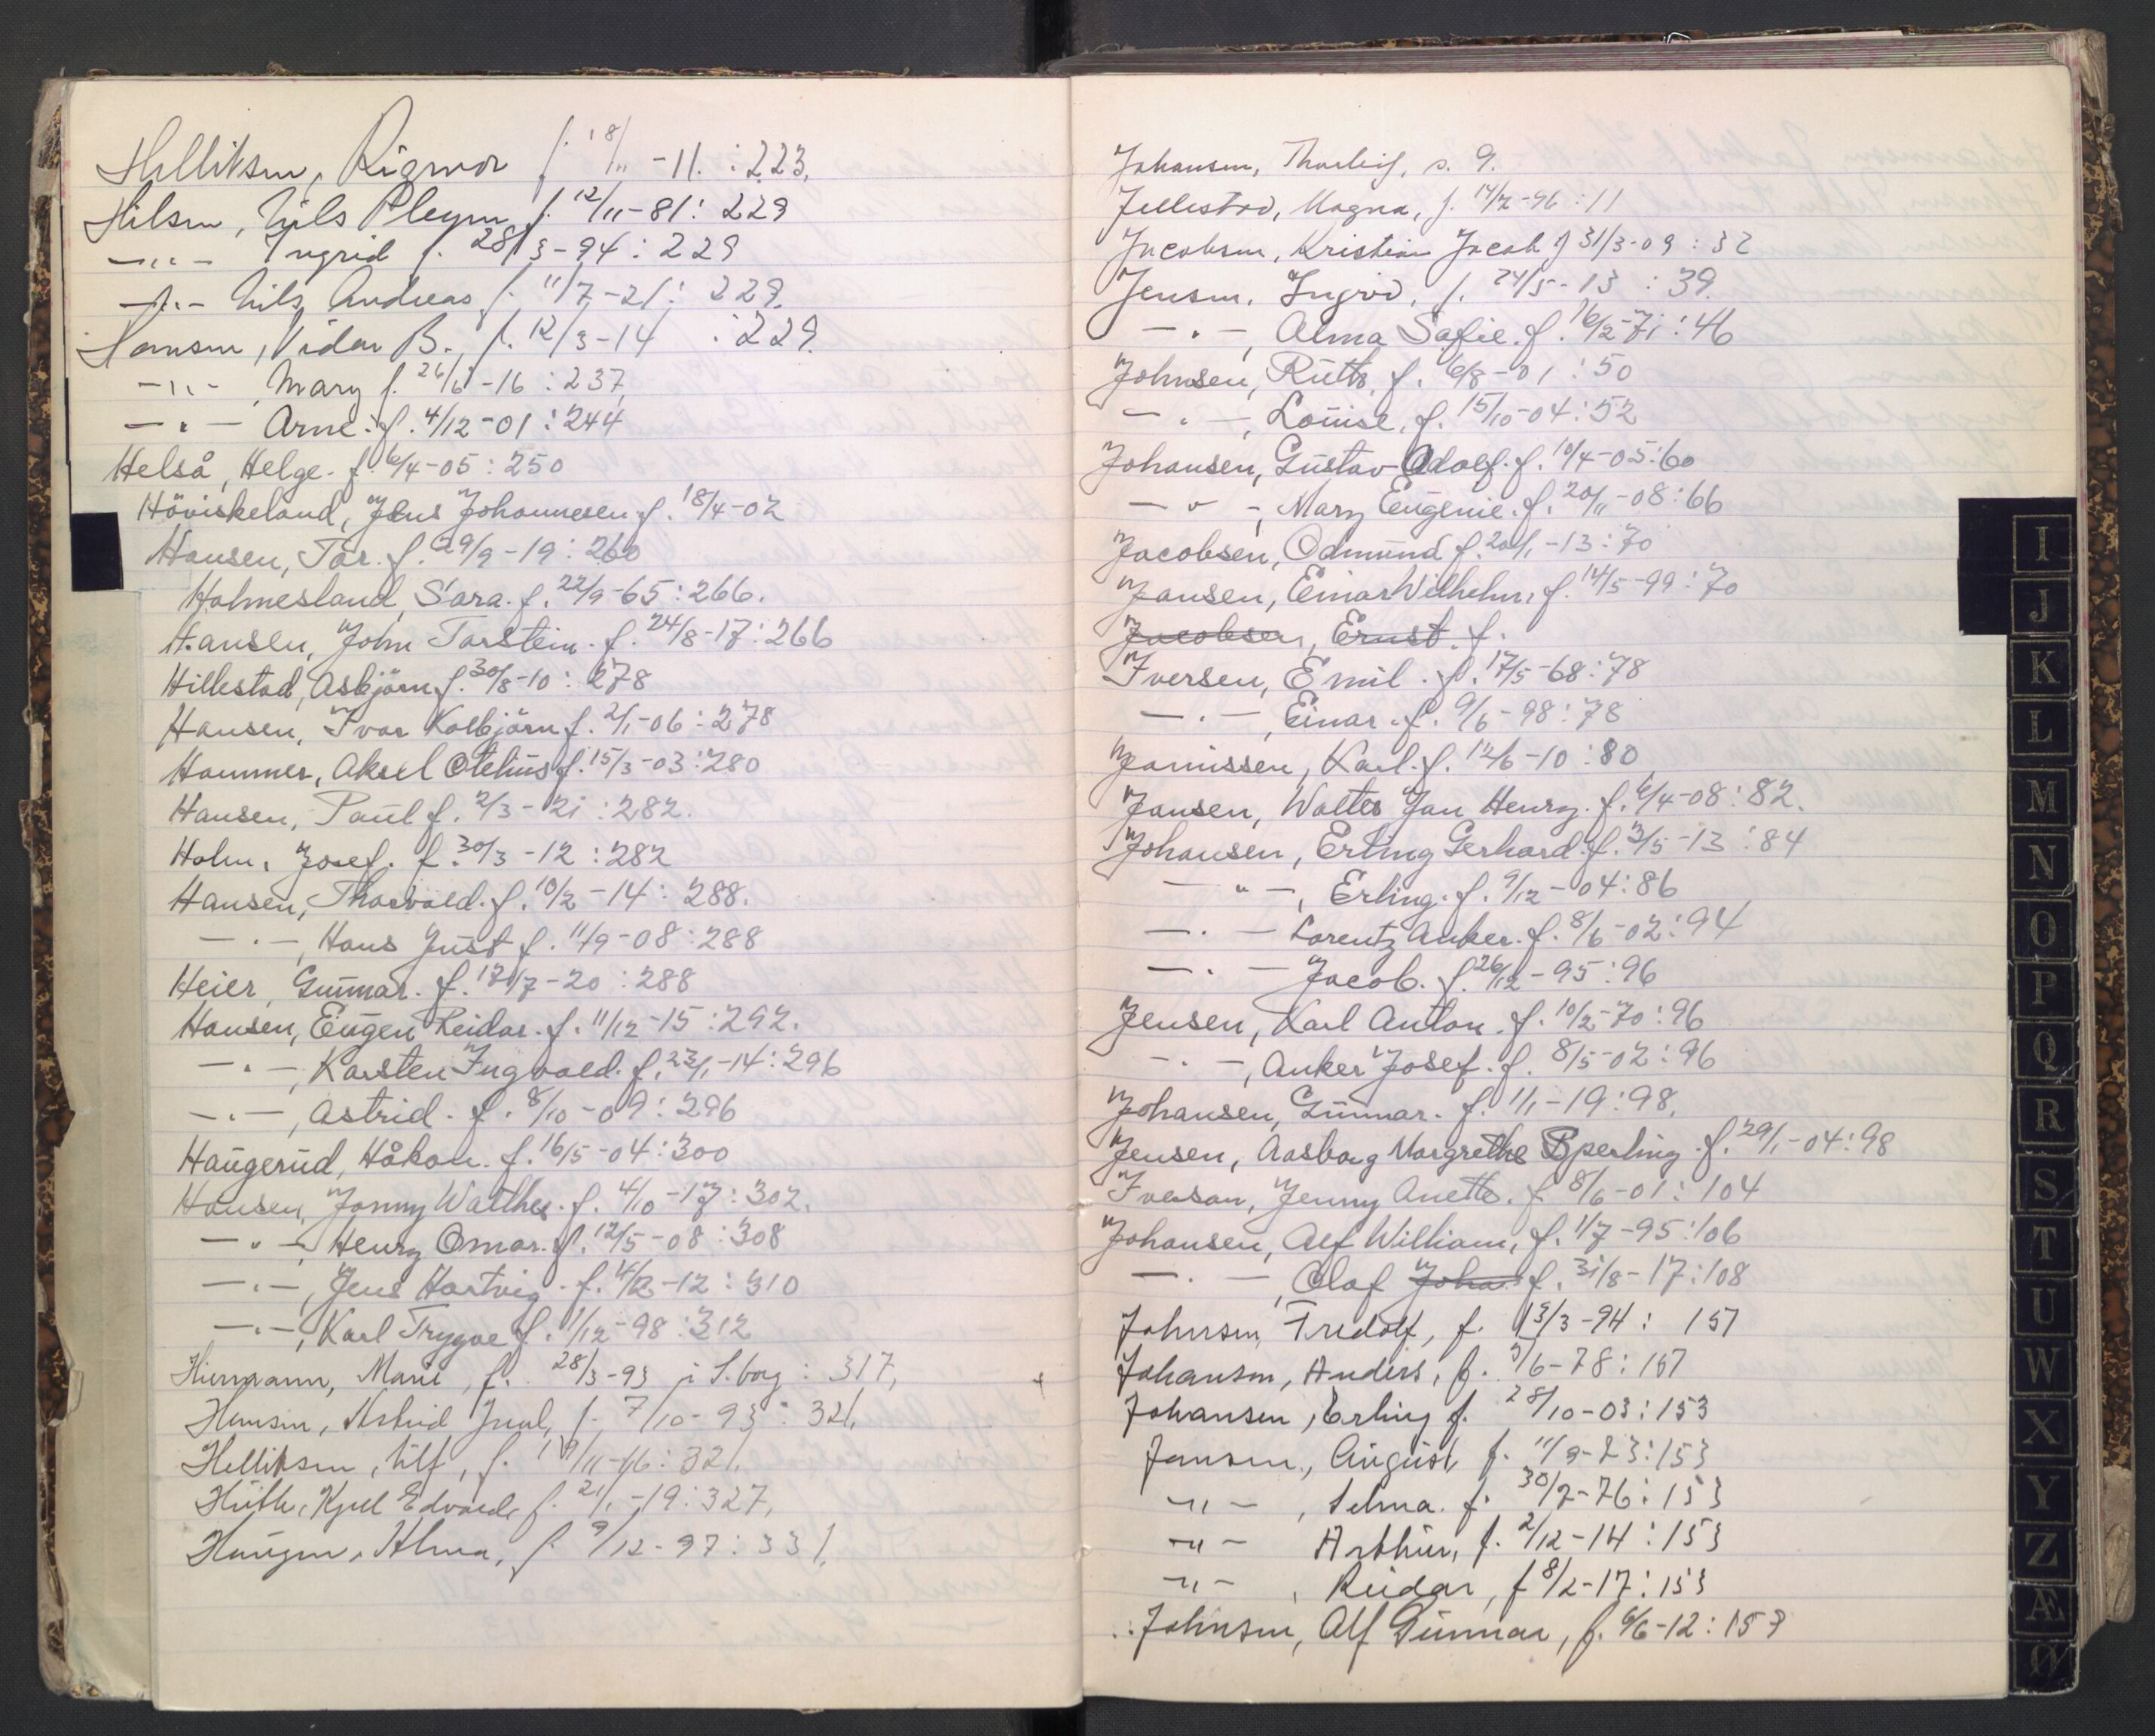 Helliksen, Rigmor f. 18/11 -11. : 223.
Hilsen, Nils Pleym f. 12/11-81: 229
-"- Ingrid f. 28/3-94: 229
-"- Nils Andreas f. 11/7-21: 229.
Hansen, Vidar B., f. 12/3-14 : 229.
-"- , Mary f. 26/6-16 : 237,
-"- Arne. f. 4/12-01: 244
Helså, Helge. f. 6/4-05: 250
Höviskeland, Jens Johannesen. f. 18/4-02
Hansen, Tor. f. 29/9-19: 260
Holmesland, Sara. f. 22/9-65: 266.
Hansen, John Torstein. f. 24/8-17: 266
Hillestad, Asbjörn f. 30/8-10: 278
Hansen, Ivar Kolbjörn f. 2/1-06: 278
Hammer, Aksel Otelius f. 15/3-03: 280
Hansen, Paul f. 2/3-21: 282.
Holm, Josef. f. 30/3-12: 282
Hansen, Thorvald. f. 10/2-14: 288.
-"- , Hans Just f. 11/9-08: 288
Heier, Gunnar. f. 17/7-20: 288
Hansen, Eugen Reidar. f. 11/12-15: 292.
-"- , Karsten Ingvald. f. 23/1-14: 296
-"- , Astrid. f. 8/10-09: 296
Haugerud, Håkon. f. 16/5-04: 300
Hansen, Jonny Walther. f. 4/10-17: 302.
-"- , Henry Omar. f. 12/5-08: 308
-"- , Jens Hartvig. f. 4/12-12: 310
-"- , Karl Trygve f. 1/12-98: 312
Hiermann, Marie, f. 28/3-93 i S.borg : 317,
Hansen, Astrid Juul, f. 7/10-93: 321,
Helliksen, Ulf, f. 19/11-16: 321.
Huth, Kjell Edvard, f. 21/1-19: 327,
Haugen, Alma, f. 9/12-97: 331,
Johansen, Thorleif, s. 9.
Jellestad, Magna, f. 14/2-96 : 11
Jacobsen, Kristian Jacob f 31/3-09 : 32
Jensen, Ingrid, f. 24/5-13 : 39.
-"- , Alma Sofie. f. 16/2-71: 46
Johnsen, Ruth, f. 6/8-01: 50
-"- , Louise, f. 15/10-04: 52
Johansen, Gustav Adolf. f. 10/4-05: 60
-"- , Mary Eugenie. f. 20/11-08: 66
Jacobsen, Odmund f. 20/1-13: 70
Jansen, Einar Wilhelm, f. 14/5-99: 70
Jacobsen, Ernst. f.
Iversen, Emil. f. 17/5-68: 78
-"- , Einar. f. 9/6-98: 78
Jamissen, Karl. f. 12/6-10: 80
Jansen, Walter Jan Henry. f. 6/4-08: 82.
Johansen, Erling Gerhard. f. 3/5-13: 84
-"- , Erling. f. 9/12-04: 86
-"- Lorentz Anker. f. 8/6-02: 94
-"- Jacob. f. 26/12-95: 96
Jensen, Karl Anton. f. 10/2-70: 96
-"- , Anker Josef. f. 8/5-02: 96
Johansen, Gunnar. f. 1/1-19: 98.
Jensen, Aasborg Margrethe Sperling. f. 29/1-04: 98
Iverson, Jenny Anette. f. 8/6-01: 104
Johansen, Alf William, f. 1/7-95: 106
-"- , Olaf Johan f. 31/8-17: 108
Johnsen, Fredolf, f. 13/3-94: 151
Johansen, Anders, f. 5/6-78: 151
Johansen, Erling f. 28/10-03: 153
Jansen, August, f. 11/9-23: 153
-"- , Selma. f. 30/7-76: 153
-"- Arthur, f. 2/12-14: 153
-"- , Reidar, f 8/2-17: 153
Johnsen, Alf Gunnar, f. 6/6-12: 159
I
J
K
L
M
N
O
P
Q
R
S
T
U
W
X
Y
Z
Æ
Ø